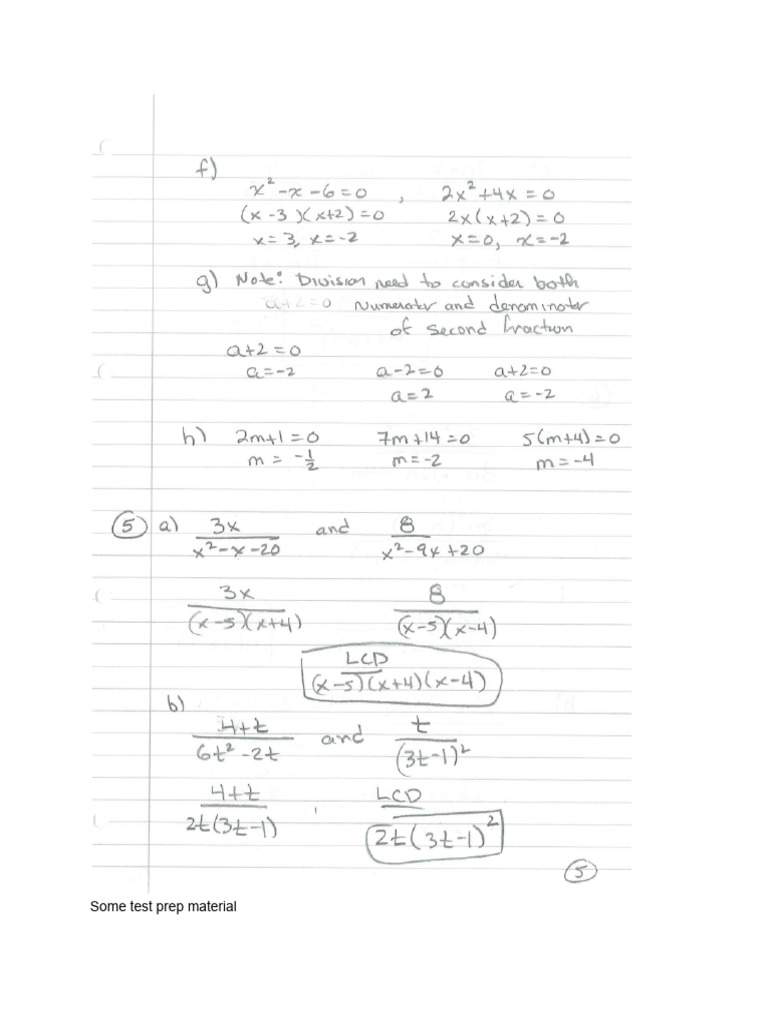 f)
x² - x - 6 = 0 , 2x² + 4x = 0
(x - 3)(x+2) = 0 2x(x+2) = 0
x = 3, x = -2 x = 0, x = -2
g) Note: Division need to consider both
a+2=0 numerator and denominator
of second fraction
a+2 = 0
a = -2 a-2=0 a+2=0
a = 2 a = -2
h) 2m+1 = 0 7m+14 = 0 5(m+4) = 0
m = -1/2 m = -2 m = -4
5 a) 3x/(x²-x-20) and 8/(x²-9x+20)
3x/((x-5)(x+4)) 8/((x-5)(x-4))
LCD
(x-5)(x+4)(x-4)
b)
4+t/(6t²-2t) and t/(3t-1)²
4+t/(2t(3t-1)) LCD
2t(3t-1)²
5
Some test prep material